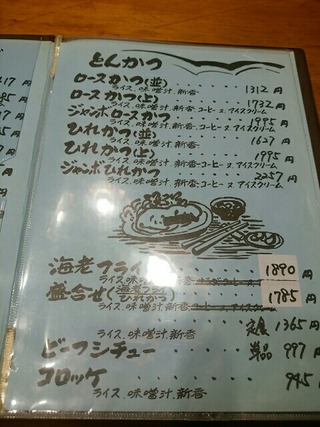 417円
円
円
円
円
とんかつ
ロースかつ(並) 1312円
ライス、味噌汁、新香
ロースかつ(上) 1732円
ライス、味噌汁、新香、コーヒー又アイスクリーム
ジャンボロースかつ 1995円
ライス、味噌汁、新香、コーヒー又アイスクリーム
ひれかつ(並) 1627円
ライス、味噌汁、新香
ひれかつ(上) 1995円
ライス、味噌汁、新香、コーヒー又アイスクリーム
ジャンボひれかつ 2257円
ライス、味噌汁、新香、コーヒー又アイスクリーム
海老フライ 1890円
ライス、味噌汁、新香
盛合せ(ひれかつ) 1785円
ライス、味噌汁、新香
定食 1365円
ライス、味噌汁、新香
ビーフシチュー 単品 997円
コロッケ 945円
ライス、味噌汁、新香